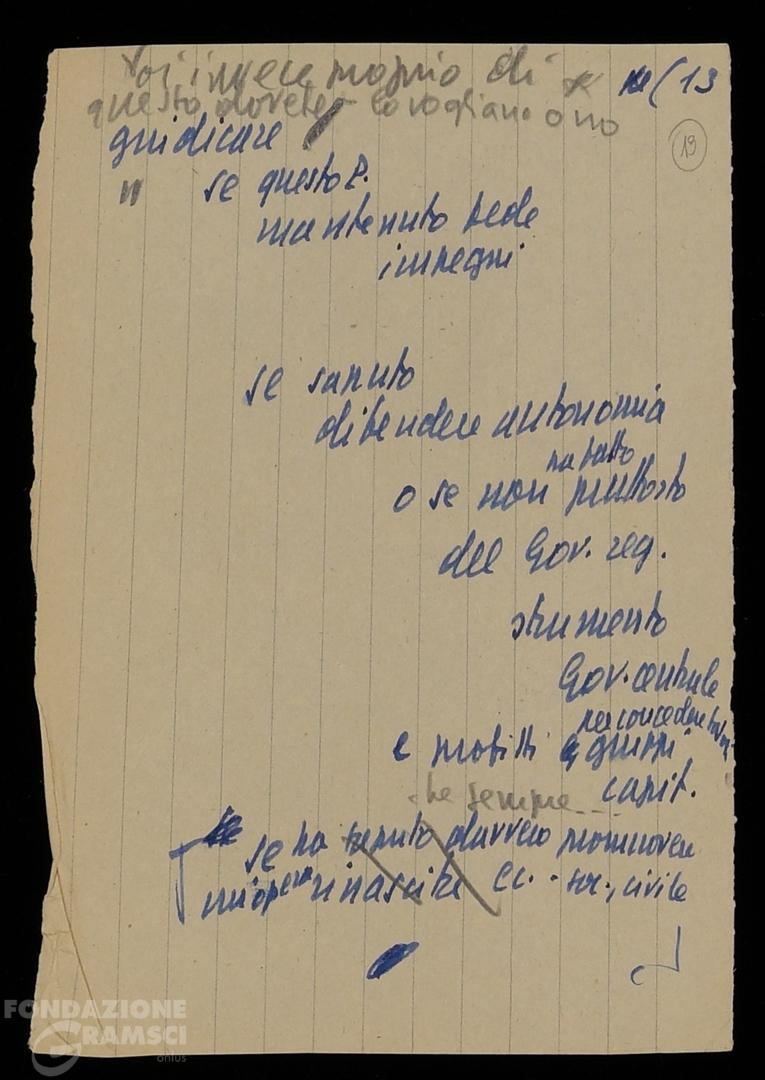 Voi invece proprio di
13
questo dovete - lo vogliano o no
19
giudicare
se questo P.
mantenuto fede
impegni
se saputo
difendere autonomia
ha fatto
o se non piuttosto
del Gov. reg.
strumento
Gov. centrale
per concedere
e profitti a gruppi
capit.
che sempre...
se ha saputo davvero promuovere
un'opera rinascita ec. - soc., civile
FONDAZIONE
GRAMSCI
onlus